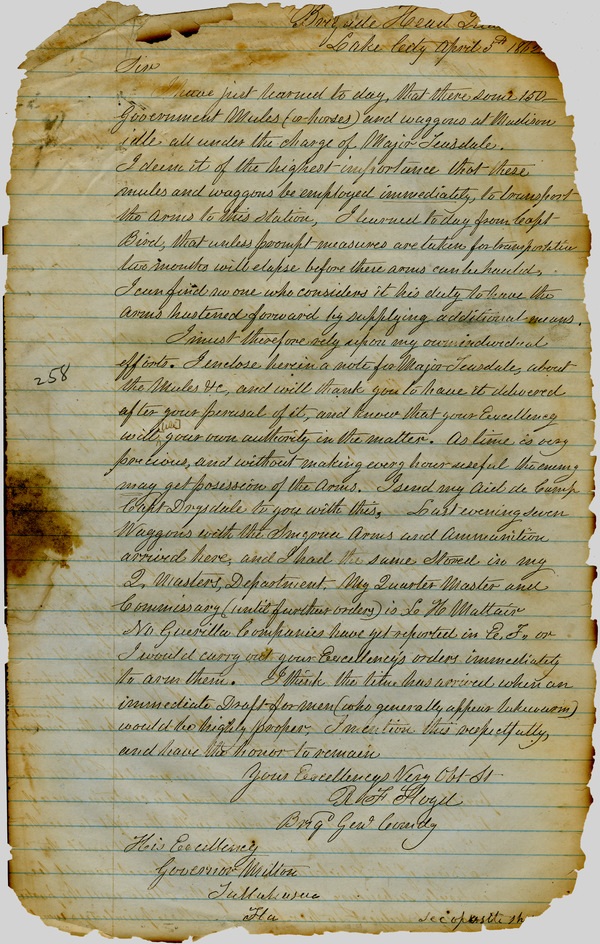 Brigade Head
Lake City April 5th 1862
Sir
I have just learned to day, that there some 150
Government Mules (or horses) and waggons at Madison
idle all under the charge of Major Teasdale.
I deem it of the highest importance that these
mules and waggons be employed immediately, to transport
the arms to this station, I learned to day from Capt
Bird, that unless prompt measures are taken for transportation
two months will elapse before these arms can be hauled,
I can find no one who considers it his duty to have the
arms hastened forward by supplying additional means.
I must therefore rely upon my own individual
efforts. I enclose herein a note for Major Teasdale, about
the Mules &c, and will thank you to have it delivered
after your perusal of it, and know that your Excellency
will, use your own authority in the matter. As time is very
precious, and without making every hour useful the enemy
may get posession of the arms. I send my Aid de Camp
Capt Drysdale to you with this, Last evening seven
Waggons with the Smyrna Arms and Ammunition
arrived here, and I had the same Stored in my
Q. Masters, Department. My Quarter Master and
Commissary (until further orders) is L. H. Mattair
No Guerilla Companies have yet reported in E. F. or
I would carry out your Excellency's orders immediately
to arm them. I think the time has arrived when an
immediate Draft for men (who generally appear lukewarm)
would be highly proper, I mention this respectfully,
and have the honor to remain
Your Excellencys Very Obt St
R F Floyd
Brigd Genl Comdg
His Excellency
Governor Milton
Tallahassee
Fla
258